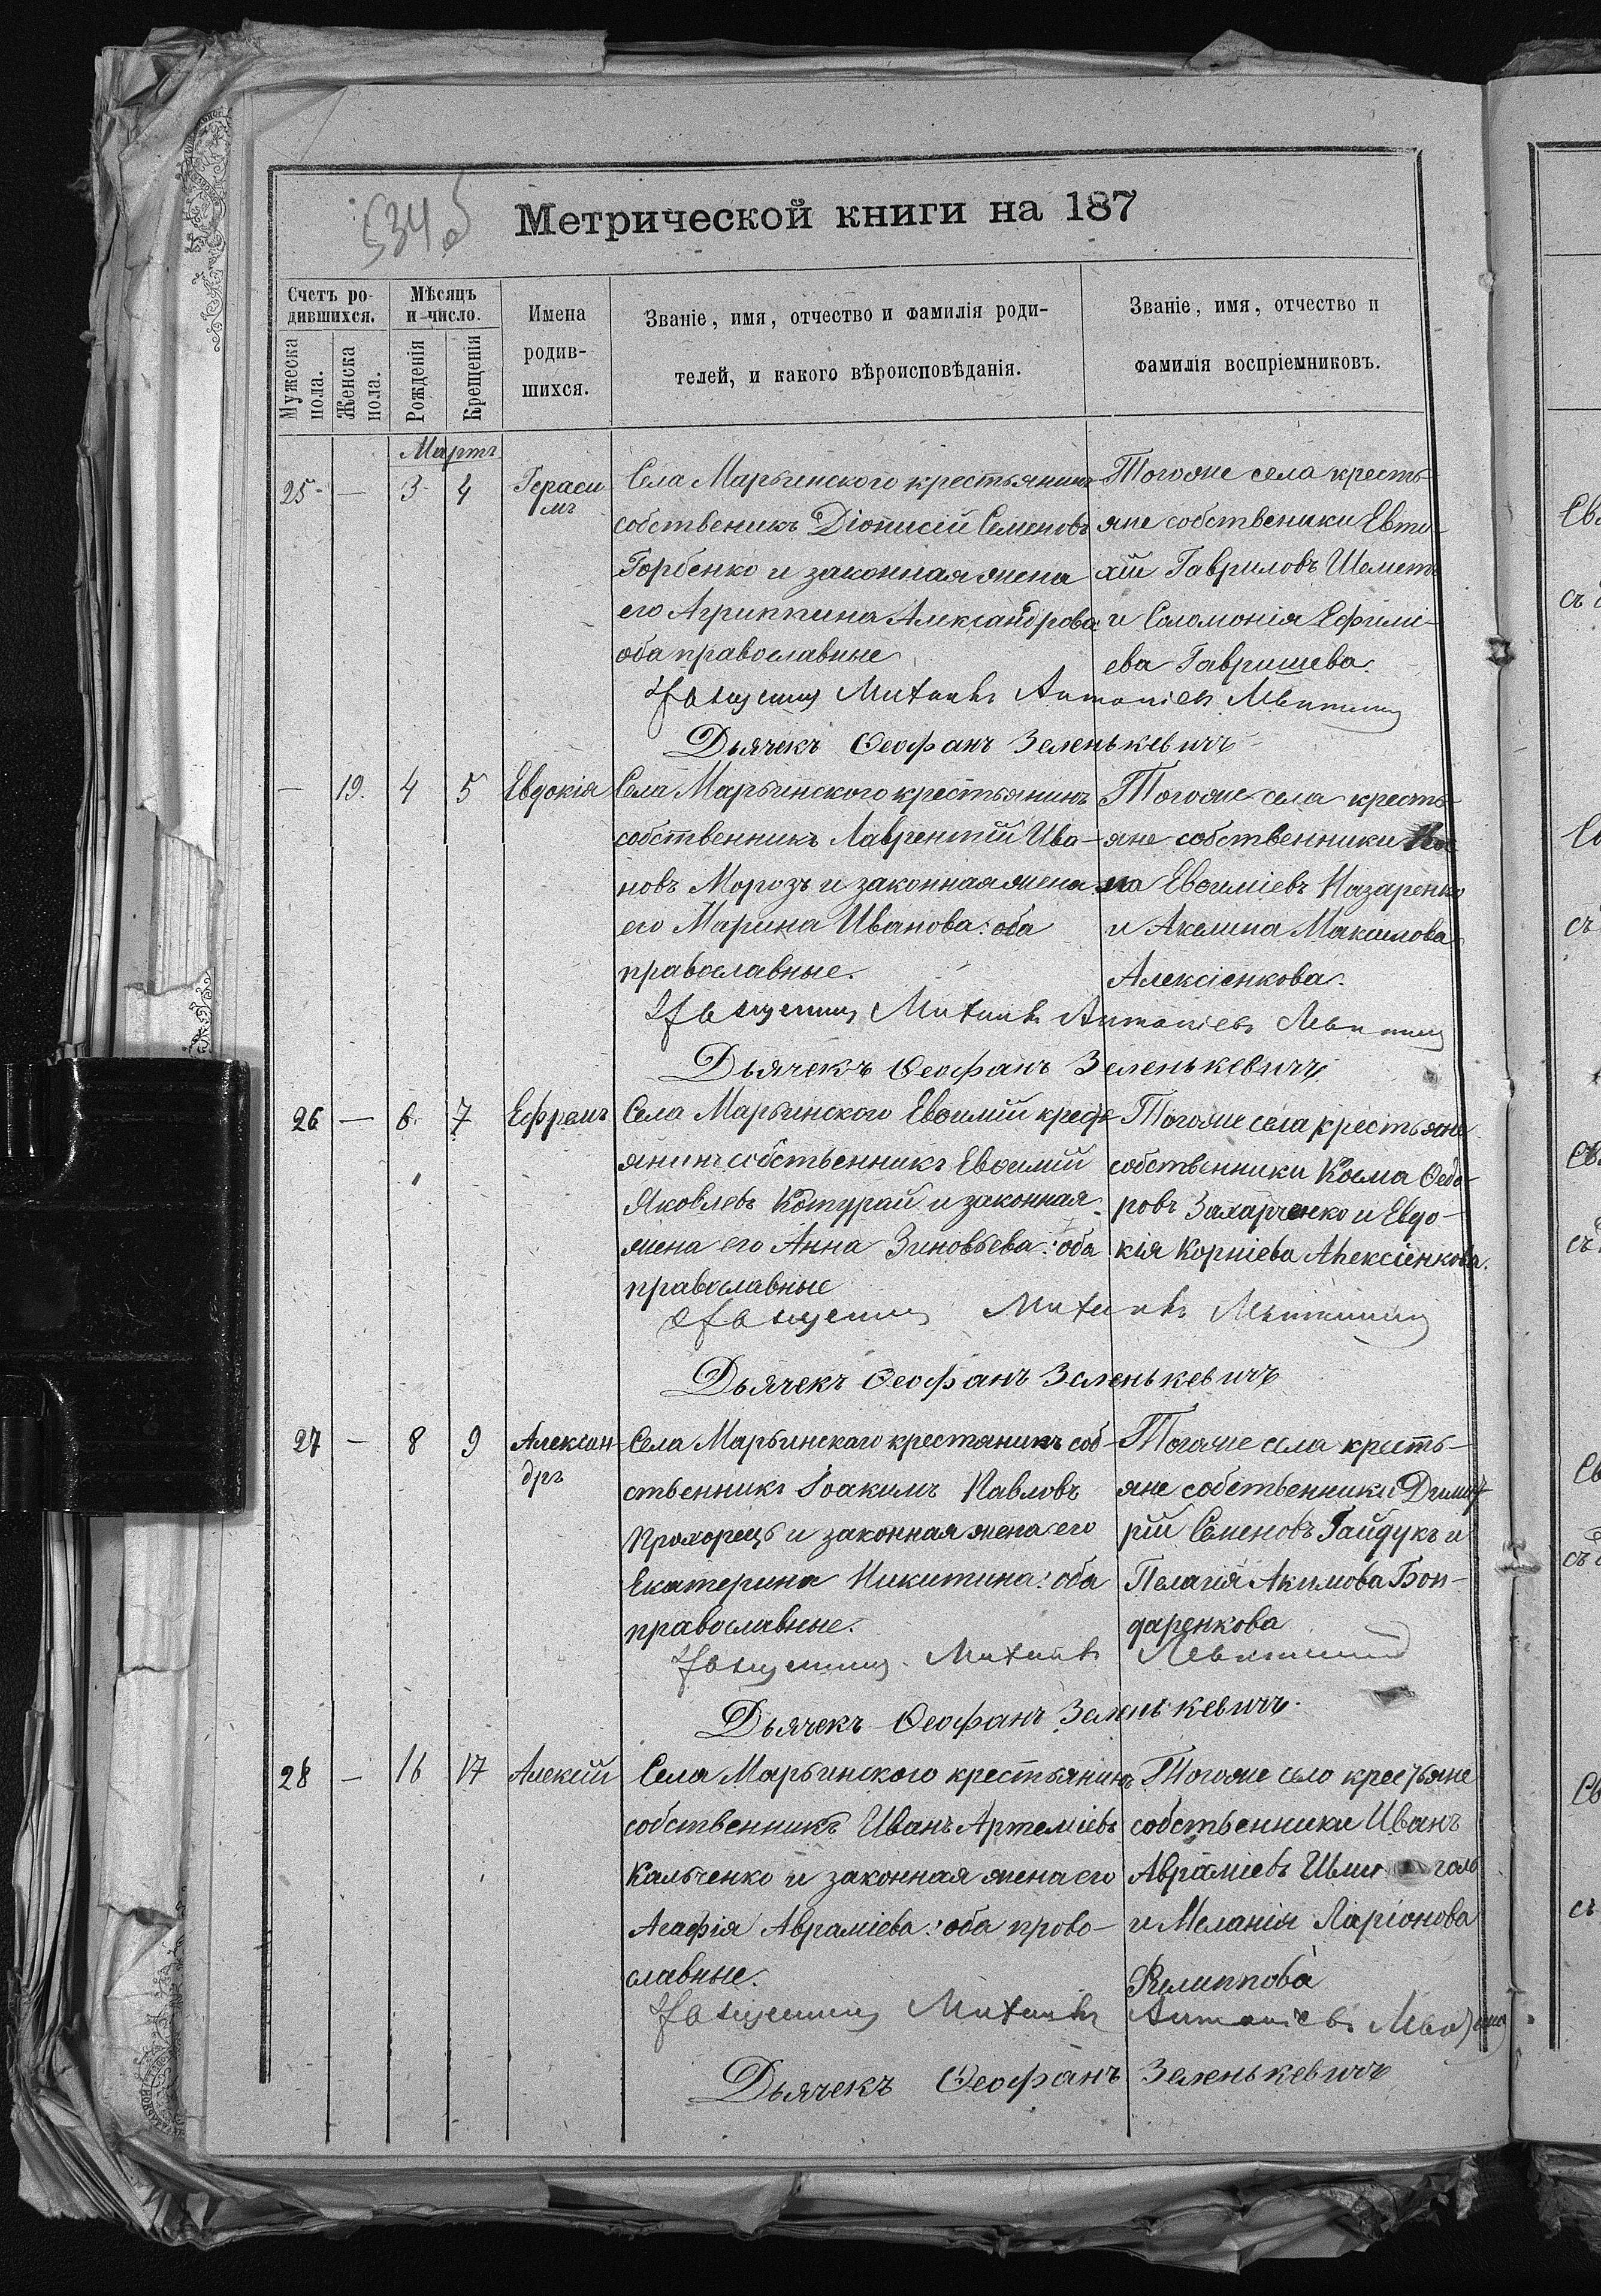 534 об
Метрической книги на 187
Счетъ ро-
дившихся.
Мужеска пола.
Женска пола.
Мѣсяцъ
и число.
Рожденія
Крещенія
Имена
родив-
шихся.
Званіе, имя, отчество и фамилія роди-
телей, и какого вѣроисповѣданія.
Званіе, имя, отчество и
фамилія воспріемниковъ.
Мартъ
25 — 3 4 Гераси
мъ
Села Марьинского крестьянинъ
собственикъ Діонисій Семеновъ
Горбенко и законная жена
его Агриппина Александрова
оба православные
Тогоже села кресть-
яне собственики Евти-
хій Гавриловъ Шеметъ
и Соломонія Ефимі-
ева Гавришева.
Священникъ Михаилъ Антоніевъ
Дьячекъ Ѳеофанъ Зеленькевичъ
— 19. 4 5 Евдокія
Села Марьинского крестьянинъ
собственникъ Лаврентій Ива-
новъ Морозъ и законная жена
его Марина Иванова: оба
православные.
Тогоже села кресть-
яне собственники
ма Евѳиміевъ Назаренко
и Акилина Максимова
Алексіенкова.
Священникъ Михаилъ Антоніевъ
Дьячекъ Ѳеофанъ Зеленькевичъ
26 — 6. 7 Ефремъ
Села Марьинского Евѳимій крест
янинъ собственникъ Евѳимій
Яковлевъ Котурай и законная
жена его Анна Зиновьева: оба
православные
Тогоже села крестьяне
собственники Косма Ѳедо-
ровъ Захарченко и Евдо-
кія Корніева Алексіенкова.
Священникъ Михаилъ
Дьячекъ Ѳеофанъ Зеленькевичъ
27 — 8 9 Алексан-
дръ
Села Марьинскаго крестянинъ соб-
ственникъ Іоакимъ Павловъ
Прохорецъ и законная жена его
Екатерина Никитина: оба
православные.
Тогоже села кресть-
яне собственники Димит
рій Семеновъ Гайдукъ и
Пелагія Акимова Бон-
даренкова
Священникъ Михаилъ
Дьячекъ Ѳеофанъ Зеленькевичъ
28 — 16 17 Алексій
Села Марьинского крестьянинъ
собственникъ Иванъ Артеміевъ
Кальченко и законная жена его
Агафія Авраміева: оба право-
славные.
Тогоже село крестьяне
собственники Иванъ
Авраміевъ
и Меланія Ларіонова
Филиппова
Священникъ Михаилъ Антоніевъ
Дьячекъ Ѳеофанъ Зеленькевичъ